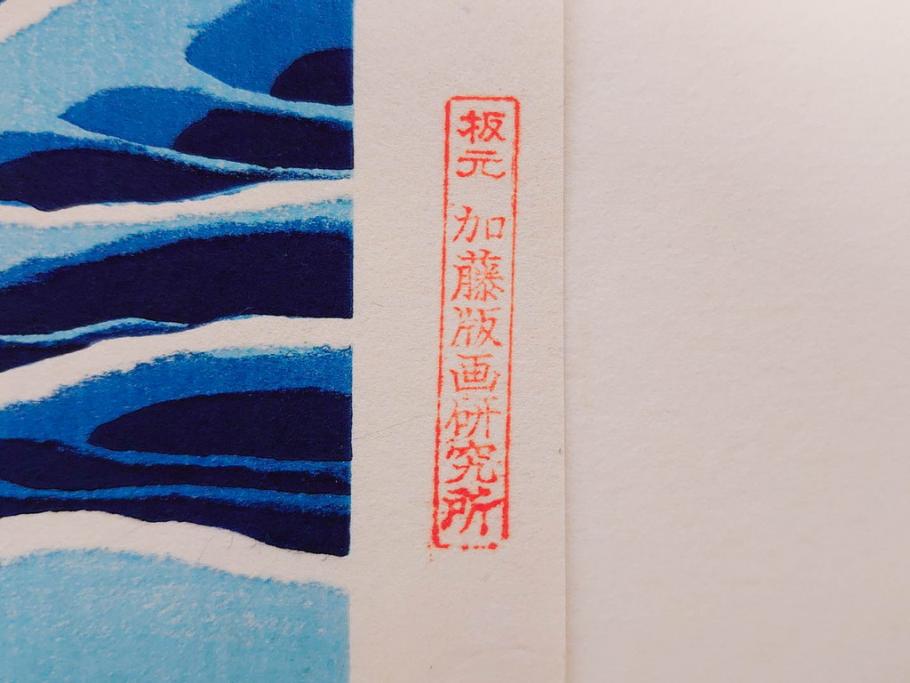 板元 加藤版画研究所